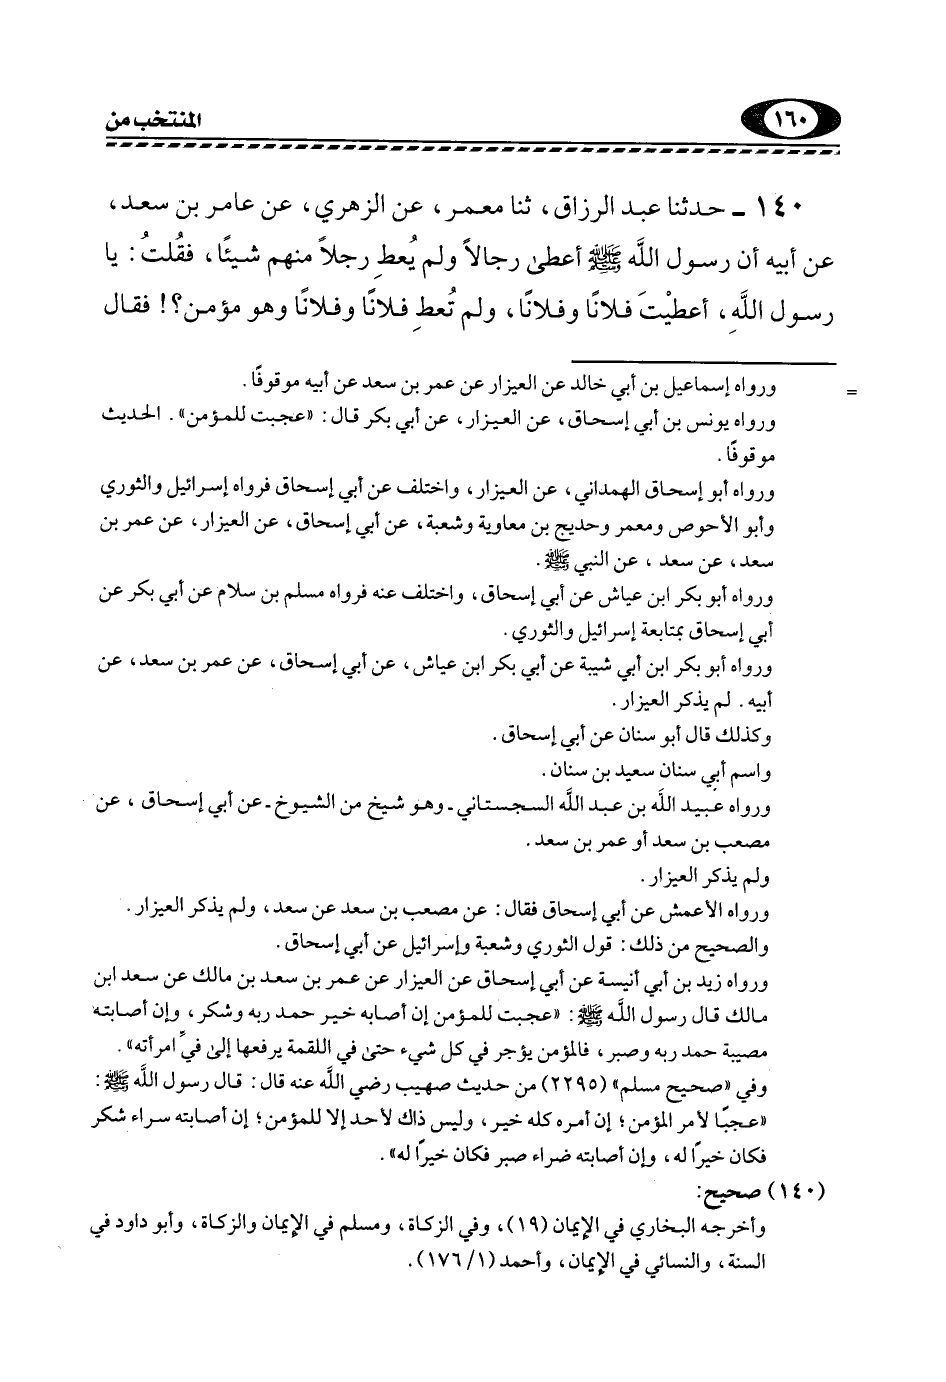 ١٦٠
المنتخب من
١٤٠ ـ حدثنا عبد الرزاق، ثنا معمر، عن الزهري، عن عامر بن سعد،
عن أبيه أن رسول اللَّه ﷺ أعطى رجالاً ولم يُعطِ رجلاً منهم شيئًا، فقُلتُ: يا
رسول اللَّهِ، أعطيْتَ فلانًا وفلانًا، ولم تُعطِ فلانًا وفلانًا وهو مؤمن؟! فقال
= ورواه إسماعيل بن أبي خالد عن العيزار عن عمر بن سعد عن أبيه موقوفًا.
ورواه يونس بن أبي إسحاق، عن العيزار، عن أبي بكر قال: «عجبت للمؤمن». الحديث
موقوفًا.
ورواه أبو إسحاق الهمداني، عن العيزار، واختلف عن أبي إسحاق فرواه إسرائيل والثوري
وأبو الأحوص ومعمر وحديج بن معاوية وشعبة، عن أبي إسحاق، عن العيزار، عن عمر بن
سعد، عن سعد، عن النبي ﷺ.
ورواه أبو بكر ابن عياش عن أبي إسحاق، واختلف عنه فرواه مسلم بن سلام عن أبي بكر عن
أبي إسحاق بمتابعة إسرائيل والثوري.
ورواه أبو بكر ابن أبي شيبة عن أبي بكر ابن عياش، عن أبي إسحاق، عن عمر بن سعد، عن
أبيه. لم يذكر العيزار.
وكذلك قال أبو سنان عن أبي إسحاق.
واسم أبي سنان سعيد بن سنان.
ورواه عبيد اللَّه بن عبد اللَّه السجستاني ـ وهو شيخ من الشيوخ ـ عن أبي إسحاق، عن
مصعب بن سعد أو عمر بن سعد.
ولم يذكر العيزار.
ورواه الأعمش عن أبي إسحاق فقال: عن مصعب بن سعد عن سعد، ولم يذكر العيزار.
والصحيح من ذلك: قول الثوري وشعبة وإسرائيل عن أبي إسحاق.
ورواه زيد بن أبي أنيسة عن أبي إسحاق عن العيزار عن عمر بن سعد بن مالك عن سعد ابن
مالك قال رسول اللَّه ﷺ: «عجبت للمؤمن إن أصابه خير حمد ربه وشكر، وإن أصابته
مصيبة حمد ربه وصبر، فالمؤمن يؤجر في كل شيء حتى في اللقمة يرفعها إلى فيِّ امرأته».
وفي «صحيح مسلم» (٢٢٩٥) من حديث صهيب رضي اللَّه عنه قال: قال رسول اللَّه ﷺ:
«عجبًا لأمر المؤمن؛ إن أمره كله خير، وليس ذاك لأحد إلا للمؤمن؛ إن أصابته سراء شكر
فكان خيرًا له، وإن أصابته ضراء صبر فكان خيرًا له».
(١٤٠) صحيح:
وأخرجه البخاري في الإيمان (١٩)، وفي الزكاة، ومسلم في الإيمان والزكاة، وأبو داود في
السنة، والنسائي في الإيمان، وأحمد (١/ ١٧٦).